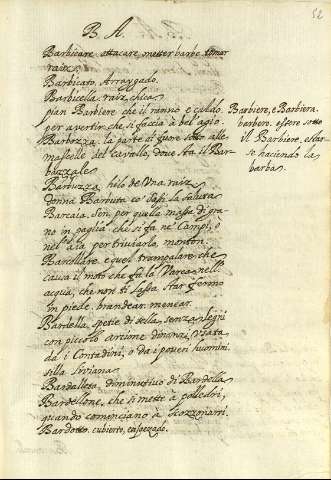 B A.
52
Barbicare attacare, metter barbe, tomar
raiz.
Barbicato, Arraygado.
Barbicella raiz, chica
pian Barbiere che il ranno è caldo.
per avertir che si faccia à bel agio.
Barbozza. la parte di fuore sotto alle
mascelle del Cavallo, dove sta il Bar
bazzale
Barbuzza, hilo de una raiz
donna Barbuta co' Sassi la saluta
Barcaia, Son, per quella massa di gra
no in paglia che si fa ne' Campi, ò
nell' aia per triviarla, monton.
Barcollare. e quel trampalare che
causa il moto che fà la Narca nell'
acqua, che non ti lassa star fermo
in piede. brandear. menear.
Bardella, spetie di sella, senza legni
con piccolo arcione dinanzi, usata
da i Contadini, o da i poveri huomini.
silla liviana.
Bardalletta, diminutivo di Bardella
Bardellone, che si mette à polledri,
quando cominciano à scozzonarsi.
Bardotto. cubierto,
Barbiere, e Barbiera.
barbero. essere sotto
il Barbiere, estar
se haciendo la
barba.